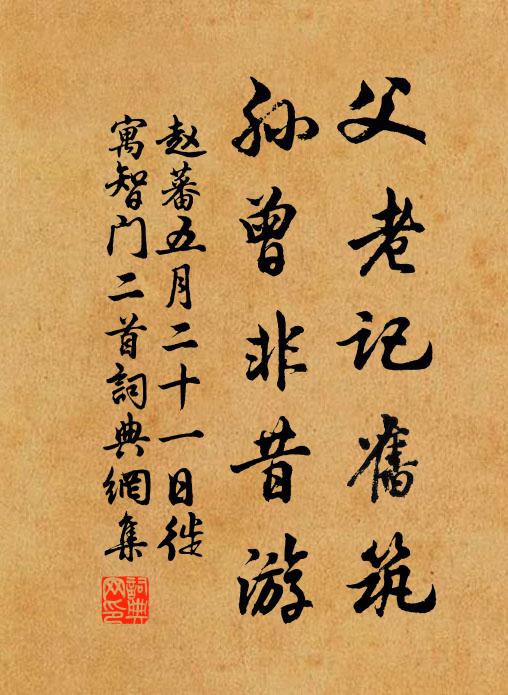 父老记舊筑
孙曾非昔游
赵蕃五月二十一日徙
寓智门二首詞典網集
詞典網印